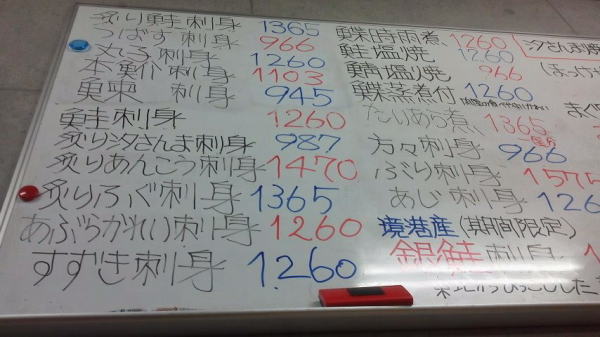 炙り鮭刺身 1365
つばす刺身 966
丈しろ刺身 1260
本鮪の刺身 1103
魚束 刺身 945
鮭刺身 1260
炙り汐さんま刺身 987
炙りあんこう刺身 1470
炙りふぐ刺身 1365
あぶらがれい刺身 1260
すずき刺身 1,260
鰈時雨煮、1260
鮭塩焼 1260
鯖塩焼 966
鰈蒸煮付 1260
たいあら煮、1365
方々刺身 966
ぶり刺身 1575
あじ刺身 126
境港産(期間限定)
銀鮭刺身 1
汐さんま
(ほっけ
まぐ